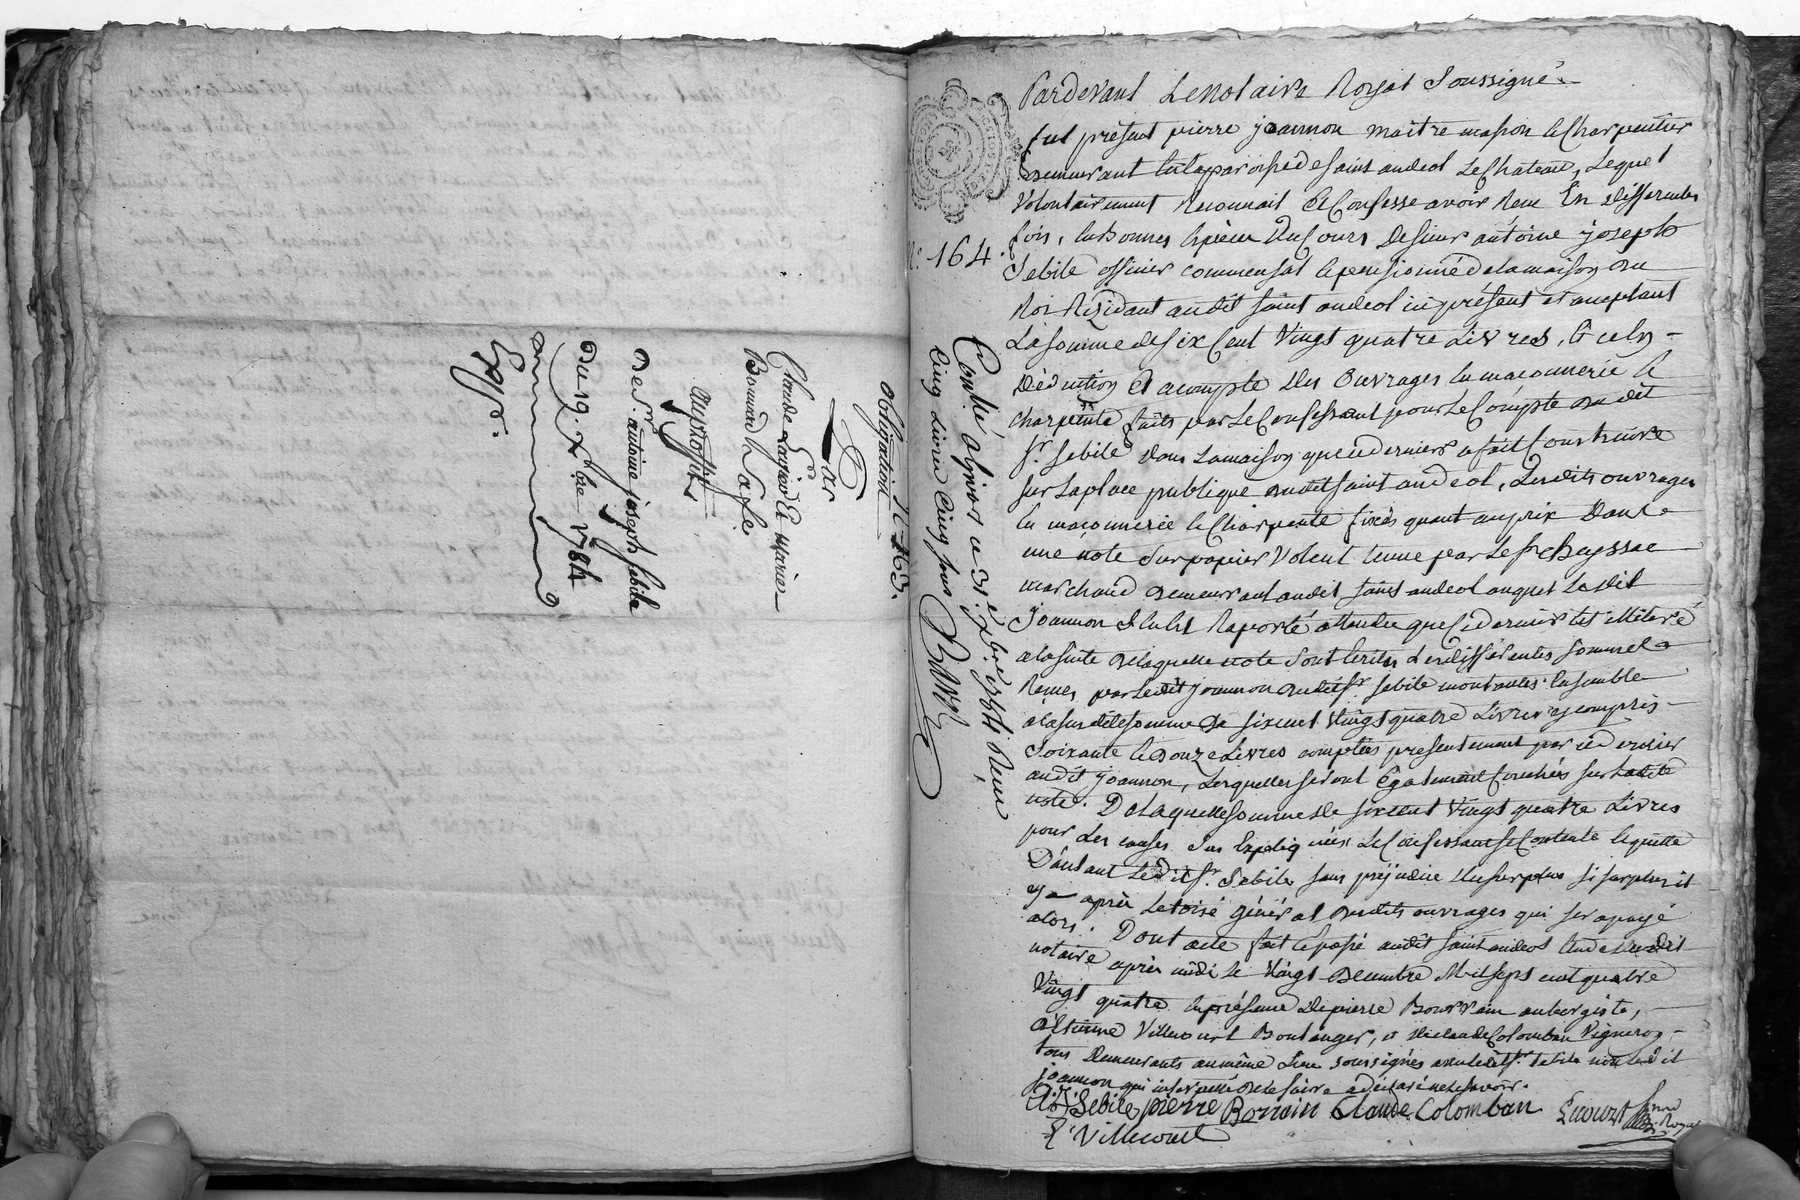 obligation N. 163.
Par
Claude Laurier Et Marie
Bonnard
au profit
De Sr. antoine joseph Sebile
Du 19. Xbre 1784
Exp.
Pardevant Le Notaire Royal Soussigné
fut présent pierre joannon maitre masson et Charpentier
demeurant en la paroisse de saint andeol Le Chateau, Lequel
Volontairement Reconnait Et Confesse avoir Reçu En differentes
fois, en Bonnes Especes Du Cours De sieur antoine joseph
Sebile officier commensal et pensionné de la maison du
Roi Rézidant audit saint andeol ici présent et acceptant
La somme de six Cent Vingt quatre Livres, Et ce En
Déduction Et acompte des ouvrages en maconnerie et
charpente faits par Le Confessant pour Le Compte dudit
Sr. Sebile dans La maison que ce dernier a fait Construire
sur La place publique dudit saint andeol, Lesdits ouvrages
En maconnerie et Charpente fixés quant au prix Dans
une note sur papier Volant tenue par Le Sr Cheyssac
marchand demeurant audit saint andeol auquel Ledit
Joannon s'en est Raporté attendu que Ce dernier est illiteré
a la suite de laquelle note sont Ecrites Les différentes sommes
Reçues par Ledit joannon dudit Sr. Sebile montantes Ensemble
a la susdite somme De six cent Vingt quatre Livres y compris
Soixante et Douze Livres comptées presentement par ce dernier
audit joannon, Lesquelles seront Egalement Couchées sur Ladite
note. De Laquelle somme de six cent Vingt quatre Livres
pour Les causes Sus Expliquées Le Confessant se Contente et quitte
D'autant Ledit Sr. Sebile, sans préjudice du surplus si surplus il
y a après Le toisé général desdits ouvrages qui sera payé
alors. Dont acte fait et passé audit saint andeol Etude dudit
notaire après midi le Vingt Decembre Mil sept cent quatre
Vingt quatre En présence de pierre Bourrain aubergiste,
Etienne Villecourt Boulanger, et de claude Colomban Vigneron
tous demeurants au même Lieu soussignés avec ledit Sr. Sebile non Ledit
joannon qui interpellé de le faire a déclaré ne le savoir.
A. J. Sebile pierre Borrain Claude Colomban
E. Villecourt
N. 164.
Conllé a Givors ce 31. Xbre 1784 Reçu
Cinq Livres Cinq sous